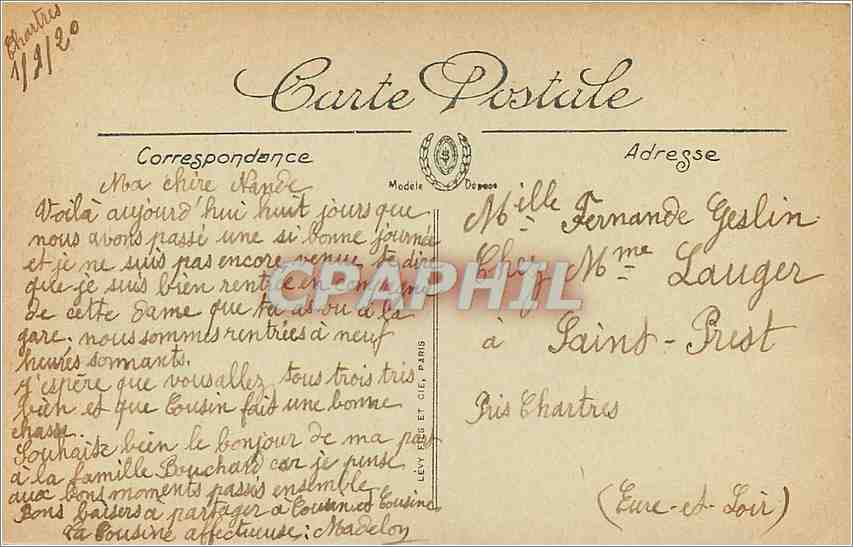 Chartres
1/2/20
Carte Postale
Correspondance
Adresse
Modèle Déposé
Ma chère Nande
Voilà aujourd'hui huit jours que
nous avons passé une si bonne journée
et je ne suis pas encore venue te dire
que je suis bien rentrée en compagnie
de cette dame que tu as vu à la
gare. nous sommes rentrées à neuf
heures sonnants.
j'espère que vous allez tous trois très
bien et que Cousin fait une bonne
chasse.
Souhaite bien le bonjour de ma part
à la famille Bouchard car je pense
aux bons moments passés ensemble
Bons baisers à partager à Cousin et Cousine
Ta Cousine affectueuse: Madelon
Mille Fernande Geslin
Chez Mme Lauger
à Saint-Prest
Près Chartres
(Eure-et-Loir)
LÉVY FILS ET CIE, PARIS
CPAPHIL